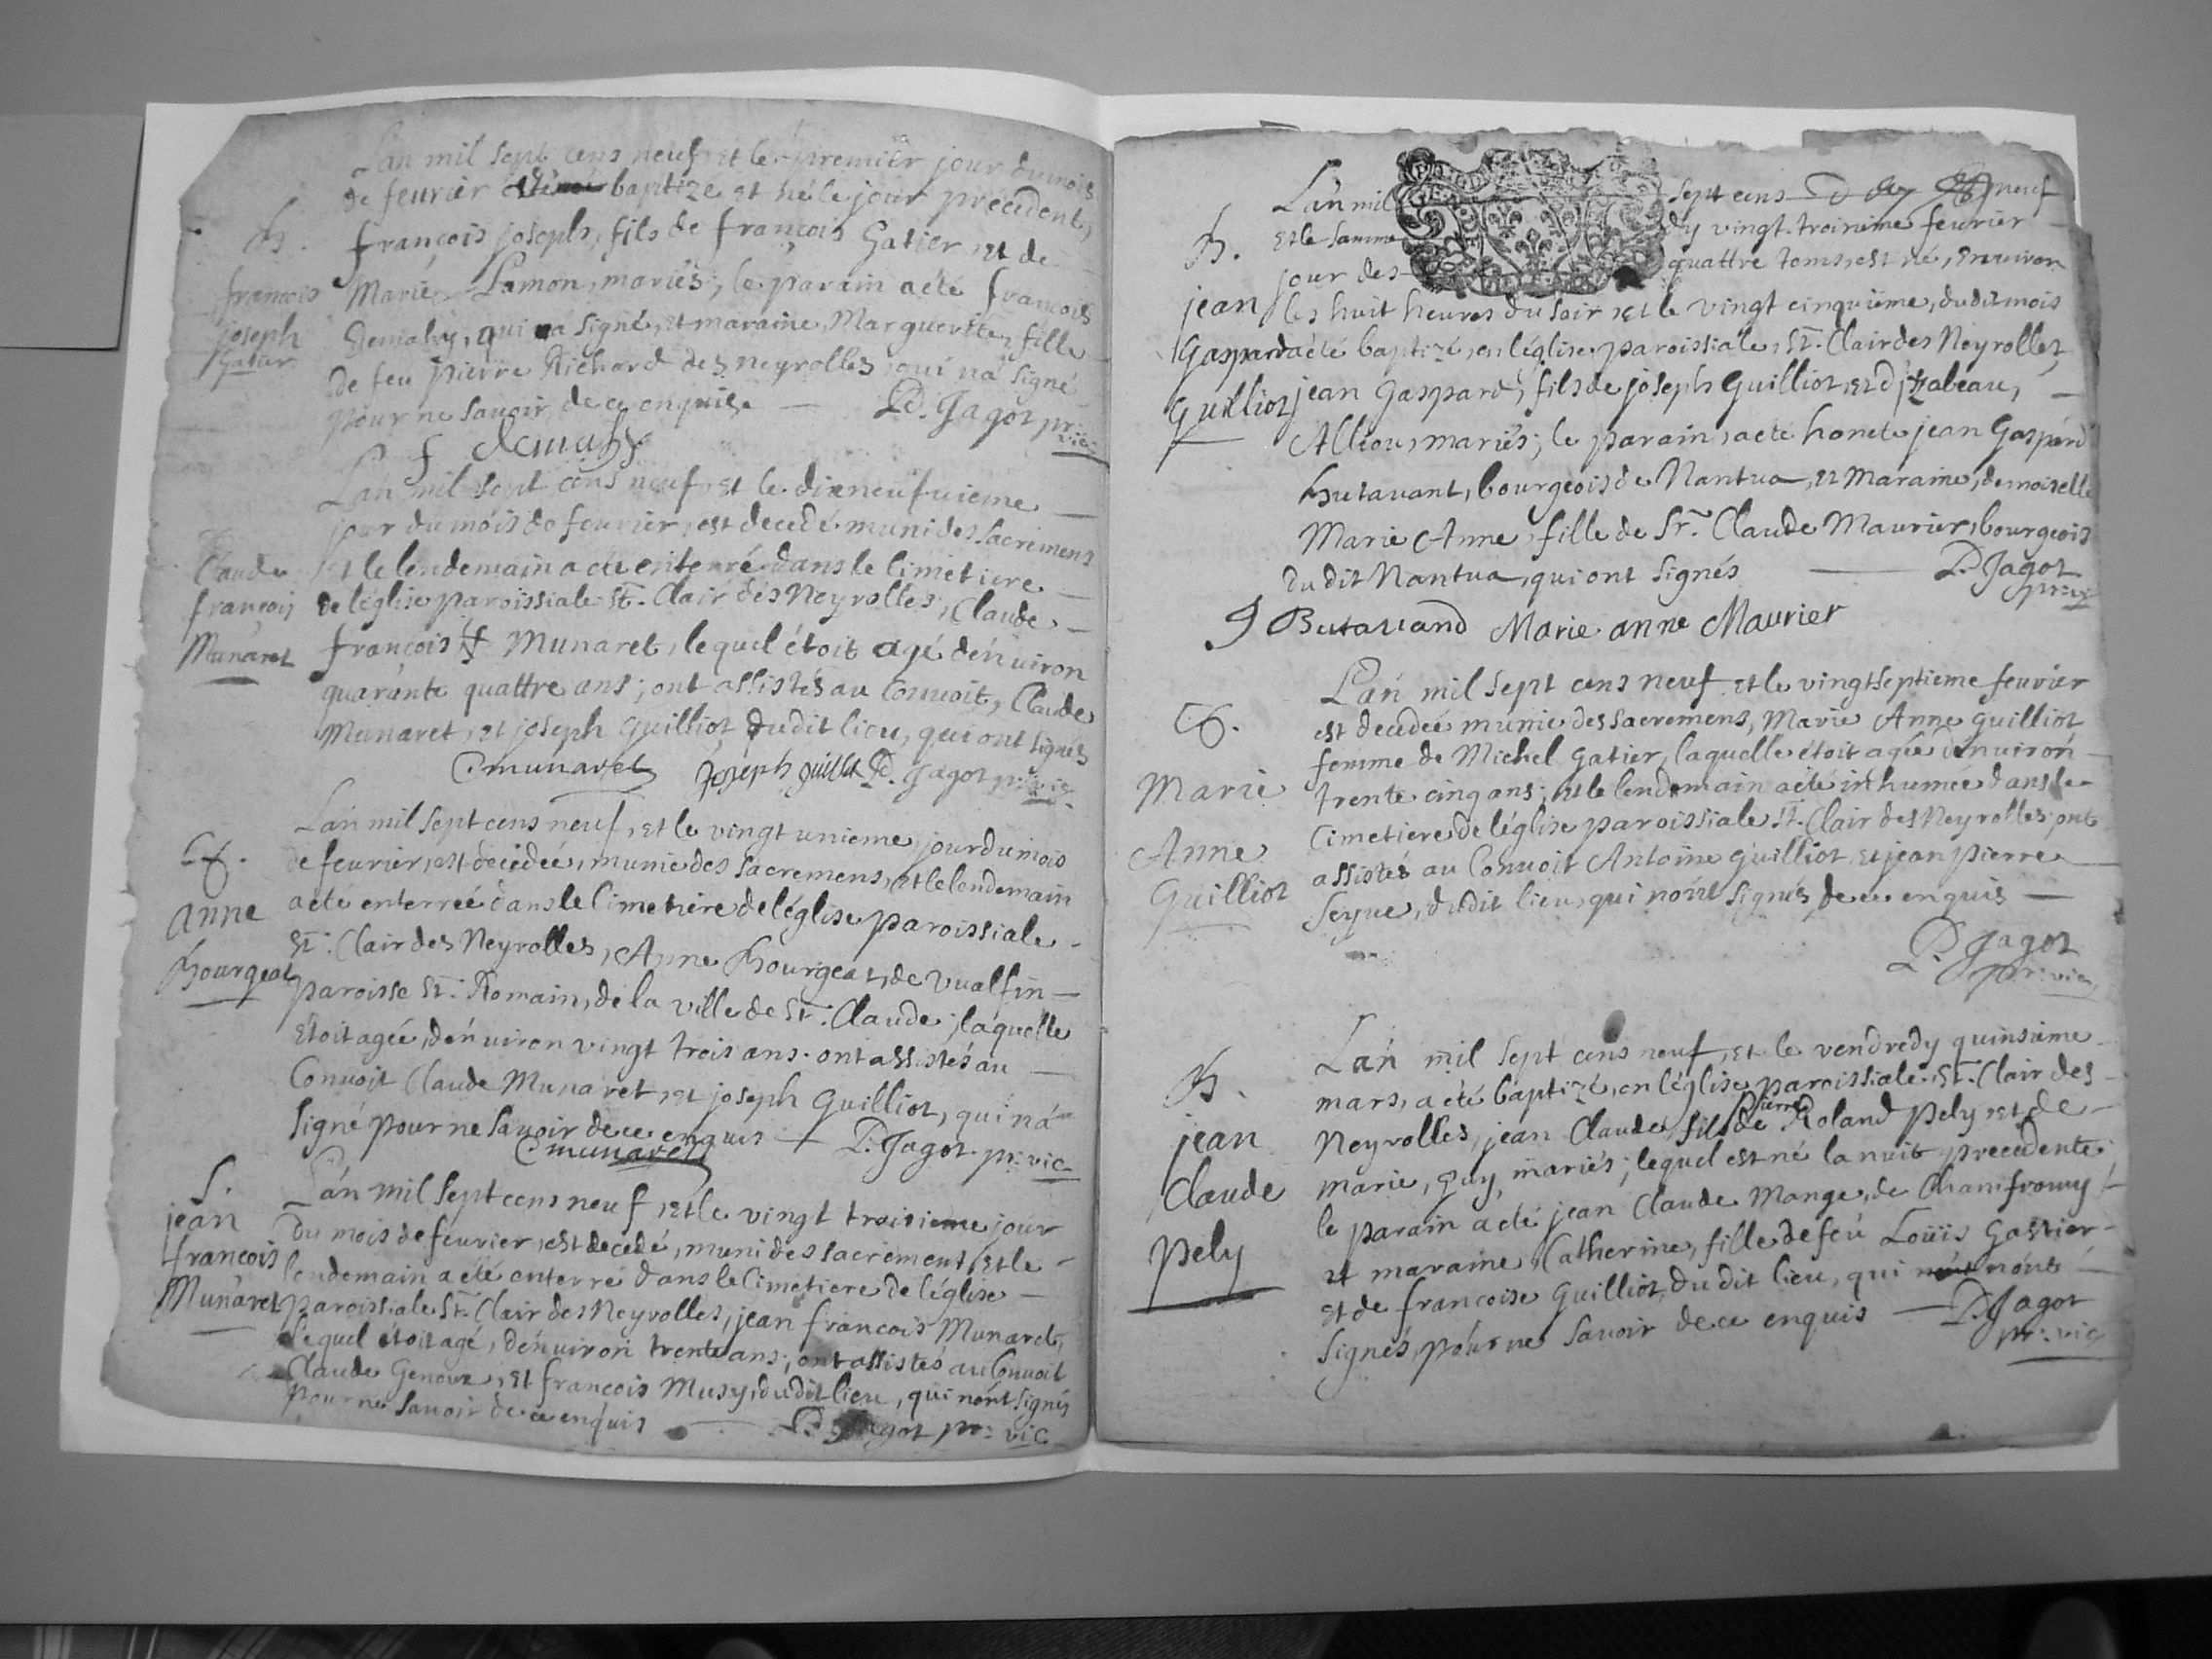 Lan mil sept cens neuf, et le premier jour du mois
de feurier a été baptize et né le jour precedent,
B.
françois joseph, fils de françois Gatier, et de
françois
joseph
Gatier
Marie Lamon, mariés; le parain a été françois
Demahy, qui a signé, et maraine, Marguerite, fille
de feu pierre Richard des neyrolles, qui na signé
pour ne sauoir, de ce enquise — P. Jagot pr: vic:
f demahy
Lan mil sept cens neuf, et le dixneufuieme —
jour du mois de feurier, est decedé muni des sacremens
et le lendemain a été enterré dans le Cimetiere —
Claude
françois
Munaret
de léglise paroissiale St. Clair des Neyrolles, Claude —
françois Munaret, lequel étoit agé dénuiron
quarante quattre ans; ont assistés au Conuoit, Claude
Munaret, et joseph Guilliot dudit lieu, qui ont signés
C munaret joseph guilliot P. Jagot pr: vic:
Lán mil sept cens neuf, et le vingt unieme jour du mois
de feurier, est decedée, munie des sacremens, et le lendemain
a été enterrée dans le Cimetiere de léglise paroissiale -
anne
bourgeat
St. Clair des Neyrolles, Anne bourgeat, de Vualfin —
paroisse St. Romain, de la ville de St. Claude; laquelle
étoit agée, dénuiron vingt trois ans. ont assistés au —
Conuoit Claude Munaret, et joseph Guilliot, qui ná
signé pour ne sauoir de ce enquis — P. Jagot. pr: vic
C munaret
S.
jean
françois
Munaret
Lán mil sept cens neuf, et le vingt troisieme jour
du mois de feurier, est decedé, muni des sacrement, et le -
lendemain a été enterré dans le Cimetiere de léglise —
paroissiale St. Clair des Neyrolles, jean françois Munaret,
lequel étoit agé, dénuiron trente ans; ont assistés au Conuoit
Claude Genoux, et françois Musy, dudit lieu, qui nónt signés
pour ne sauoir de ce enquis — P. Jagot pr: vic
Lán mil sept cens neuf
et le samme dy vingt-troisieme feurier —
B.
jour des quattre tems, est né, enuiron
jean
Gaspard
Guilliot
les huit heures du soir, et le vingt cinquieme, dudit mois
a été baptizé, en léglise paroissiale, St. Clair des Neyrolles,
jean Gaspard, fils de joseph Guilliot, et d jzabeau, —
Alliou, mariés; le parain, a été honete jean Gaspard
butauant, bourgeois de Nantua, et Maraine, demoiselle
Marie Anne, fille de Sr. Claude Maurier, bourgeois
du dit Nantua, qui ont signés — P. Jagot
pr: vic
J Butauand Marie anne Maurier
Lán mil sept cens neuf et le vingtseptieme feurier
est decedée munie des sacremens, Marie Anne guilliot
femme de Michel Gatier, laquelle étoit agée dénuirón
Marie
Anne
Guilliot
trente cinq ans; et le lendemain a été inhumée dans le
Cimetiere de léglise paroissiale St. Clair des Neyrolles; ont
assistés au Conuoit Antoine guilliot, et jean pierre —
Seyue, dudit lieu, qui nónt signés, de ce enquis —
P. Jagot
pr: vic
Lán mil sept cens neuf, et le vendredy quinsieme
B.
mars, a été baptizé, en léglise paroissiale, St. Clair des
jean
Claude
pely
pierre
Neyrolles, jean Claude, fils de Roland pely, et de —
marie, guy, mariés; lequel est né la nuit precedente;
le parain a été jean Claude Mange, de Chamfromy
et maraine, Catherine, fille de feu Loüis Gastier
et de françoise Guilliot, du dit lieu, qui nónt —
signés, pour ne sauoir de ce enquis — P. Jagot
pr: vic